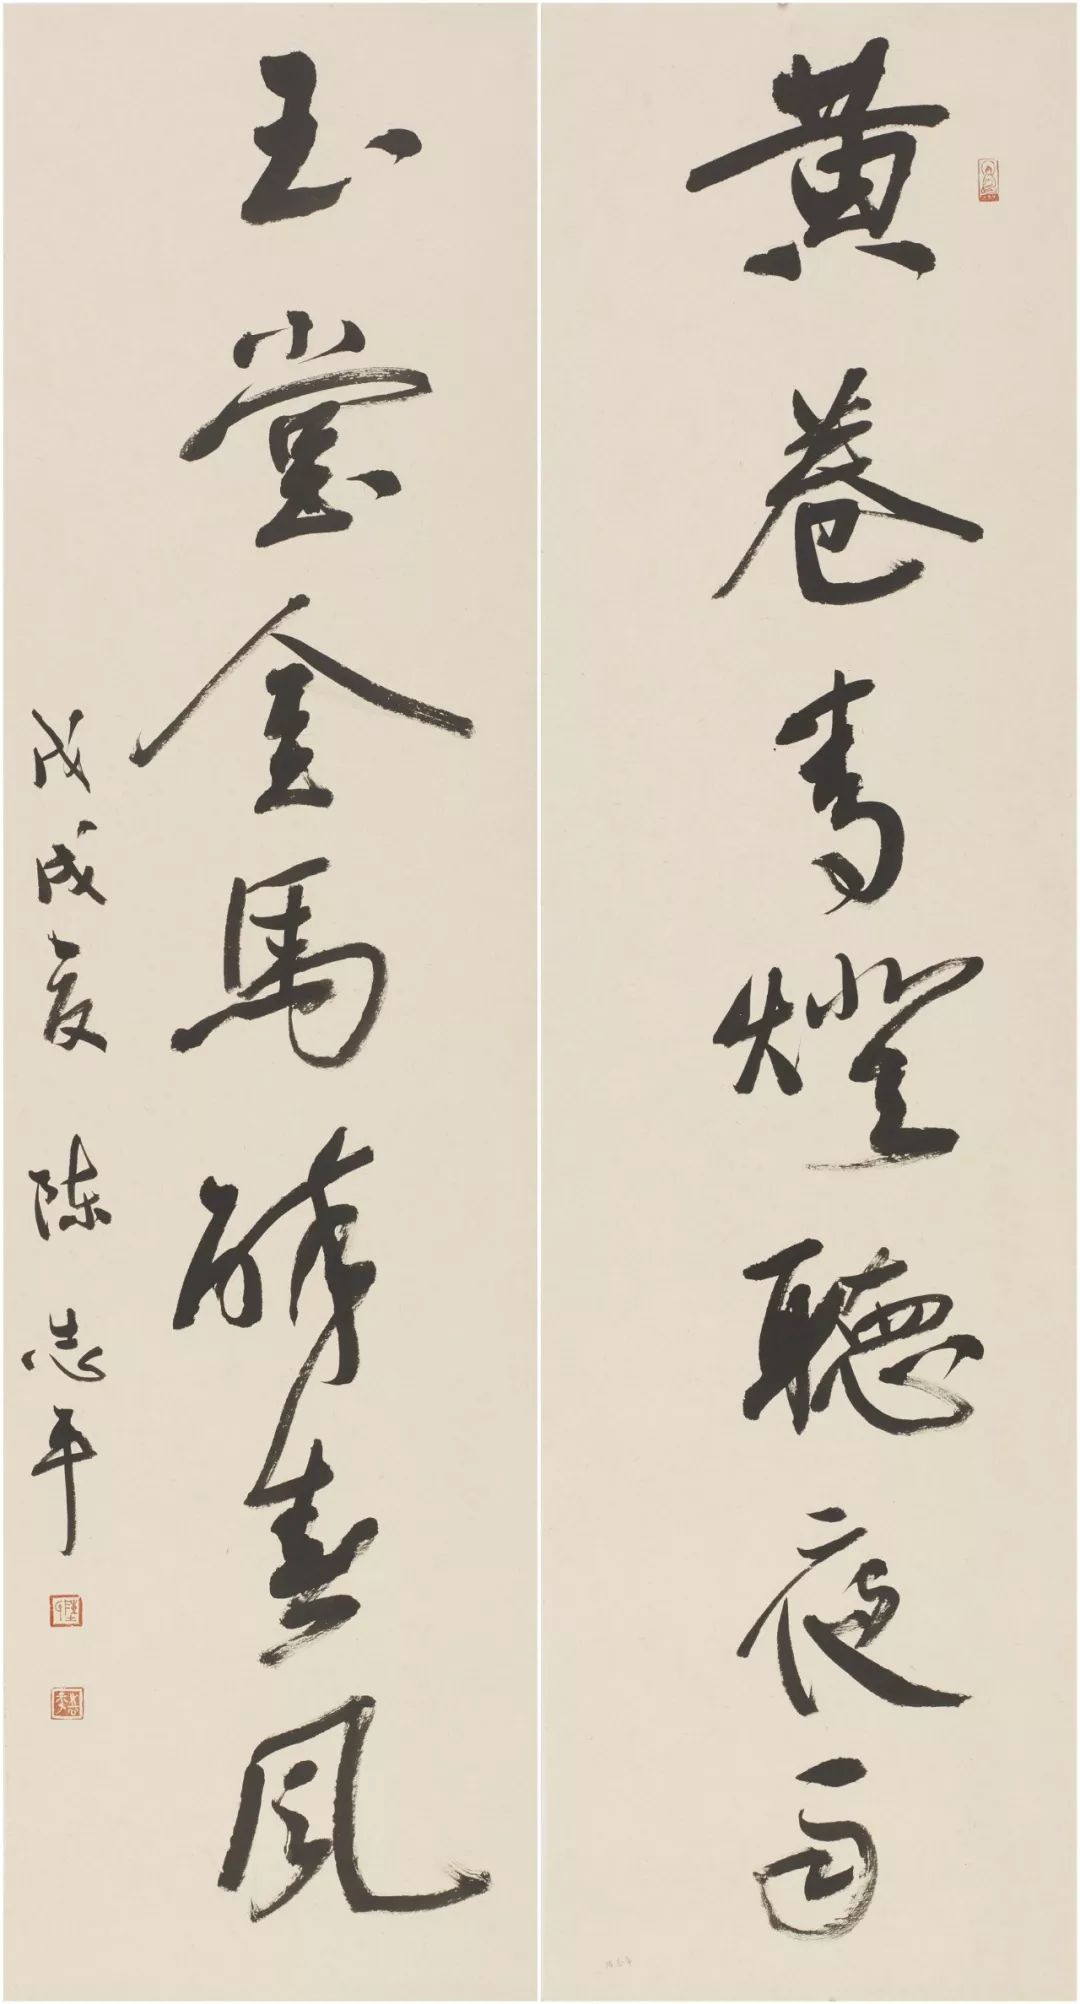 黄卷青燈聽夜雨
玉堂金馬醉春風
戊戌夏 陈志平